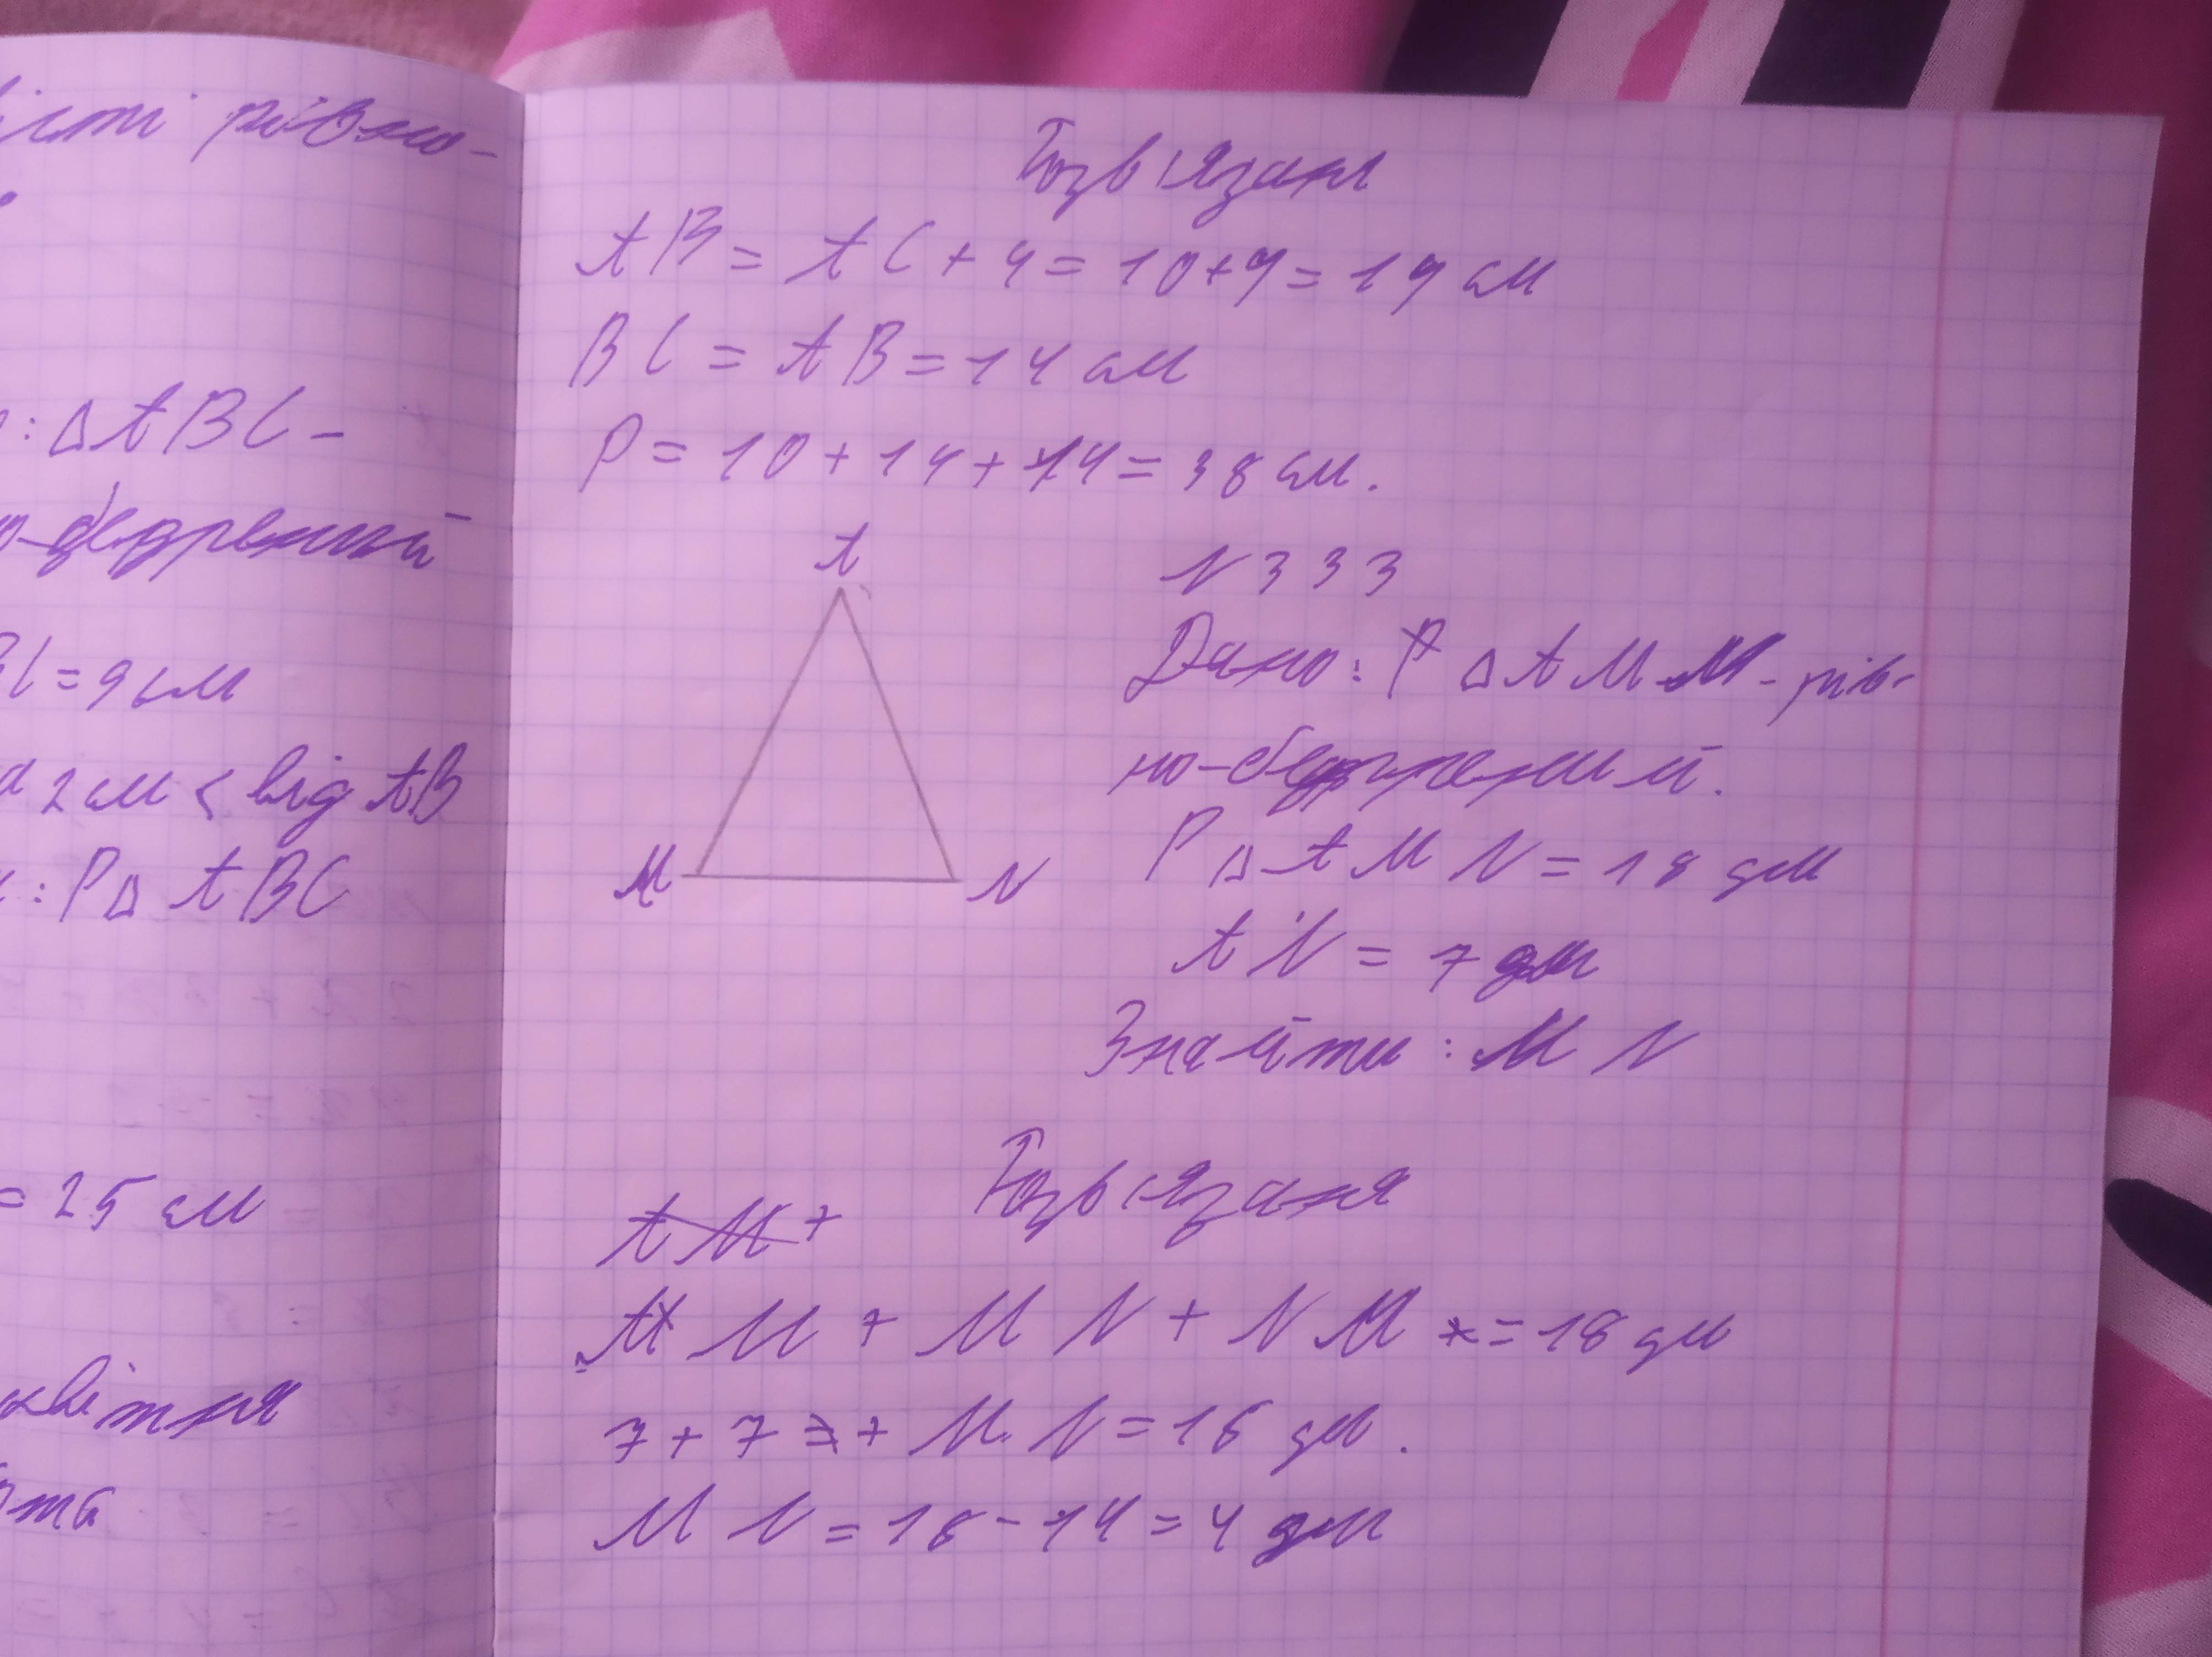 рівно-
: Δ ABC -
о-бедрений
= 9 см
2 см < від AB
: PΔ ABC
= 25 см
Розв'язаня
AB = AC + 4 = 10 + 4 = 14 см
BC = AB = 14 см
P = 10 + 14 + 14 = 38 см.
A
M N
N 333
Дано: P Δ AMN - рів-
но-бедрений.
P Δ AMN = 18 дм
AN = 7 дм
Знайти: MN
Розв'язаня
AM +
AM + MN + NA = 18 дм
7 + 7 + MN = 18 дм.
MN = 18 - 14 = 4 дм